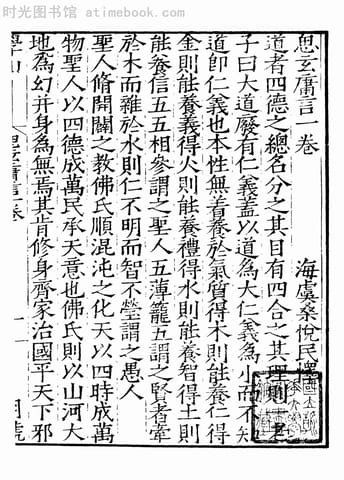 时光图书馆 atimebook.com
思玄庸言一卷
海虞桑悅民懌
道者四德之總名分之其目有四合之其理則一老
子曰大道廢有仁義蓋以道為大仁義為小而不知
道卽仁義也本性無着養於氣質得木則能養仁得
金則能養義得火則能養禮得水則能養智得土則
能養信五五相參謂之聖人五薄籠五謂之賢者牽
於木而雜於水則仁不明而智不瑩謂之愚人
聖人脩開闢之教佛氏順混沌之化天以四時成萬
物聖人以四德成萬民承天意也佛氏則以山河大
地為幻并身為無焉其肯修身齊家治國平天下邪
學山
思玄庸言一卷
一